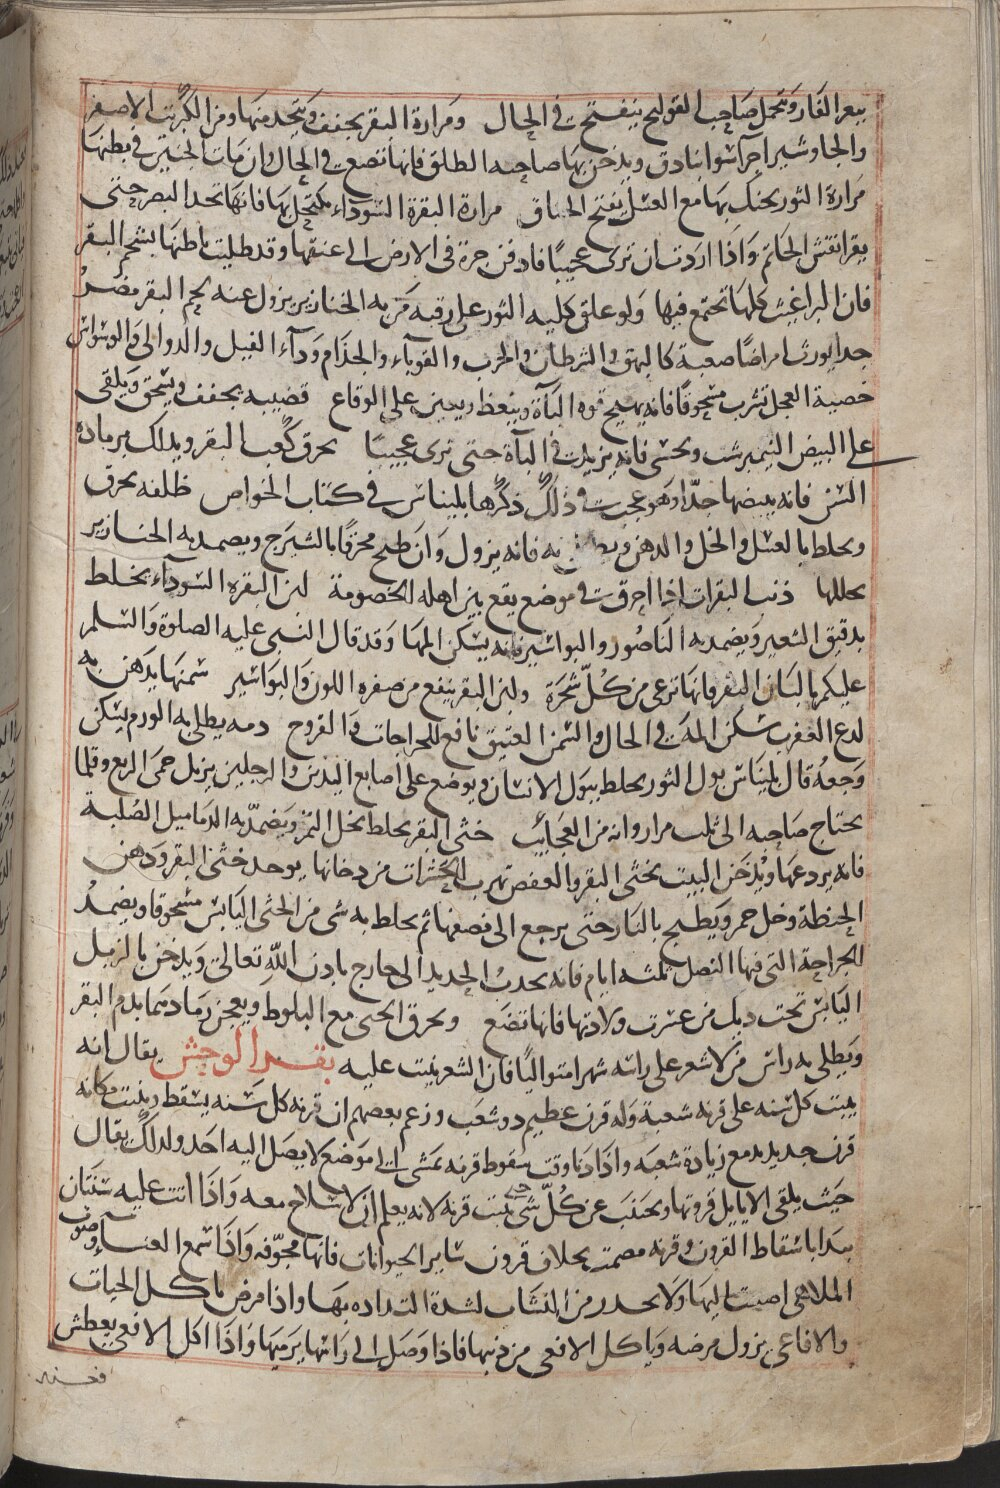 ببعر الفار وتحمل صاحب القولنج ينفتح في الحال ومرارة البقر يجفف ويتخذ منها ومن الكبريت الاصفر
والجاوشير اجزآء سوا بنادق ويدخن بها صاحبه الطلق فانها تضع في الحال وان مات الجنين في بطنها
مرارة الثور يحنك بها مع العسل يفتح الخناق مرارة البقرة السوداء يكتحل بها فانها تحد البصر حتى
يقرا نقش الخاتم واذا اردت ان ترى عجيبًا فادفن جرة في الارض الى عنقها وقد طليت باطنها بشحم البقر
فان البراغيث كلها تجتمع فيها ولو علق كليه الثور على رقبه من به الخنازير يزول عنه لحم البقر مضر
جدا يورث امراضًا صعبة كالبهق والسرطان والجرب والقوبآء والجذام ودآء الفيل والدوالى والوسواس
خصية العجل تشرب مسحوقًا فانه يهيج قوه البآة وينعظ ويعين على الوقاع قضيبه يجفف ويسحق ويلقى
على البيض النيمبرشت ويحسى فانه يزيد في البآة حتى ترى عجيبًا يحرق كعب البقر ويدلك برماده
السن فانه يبيضها جدًا وهو عجيب في ذلك ذكرها بليناس في كتاب الخواص ظلفه يحرق
ويخلط بالعسل والخل والدهن به فانه يزول وان طبخ محرقًا بالشيرج ويضمد به الخنازير
يحللها ذنب البقرات اذا احرقت في موضع يقع بين اهله الخصومة لبن البقره السودآء يخلط
بدقيق الشعير ويضمد به الناصور والبواسير فانه يسكن المها وقد قال النبي عليه الصلاوة والسلم
عليكم بالبان البقر فانها ترعى من كلّ شجرة ولبن البقر ينفع من صفره اللون والبواسير سمنها يدهن به
لدع العقرب سكن المه في الحال والسمن العتيق نافع للجراحات والقروح دمه يطلى به الورم يسكن
وجعه قال بليناس بول الثور يخلط ببول الانسان ويوضع على اصابع اليدين والرجلين يزيل حمى الربع وقلما
يحتاج صاحبه الى ثلث مرار وانه من العجايب خثى البقر يخلط بخل التمر ويضمد به الدماميل الصلبة
فانه يردعها ويدخن البيت بخثى البقر والعفص تهرب الحشرات من دخانها يوخذ خثى البقر ودهن
الحنطة وخل خمر ويطبخ بالنار حتى يرجع الى نصفها ثم يخلط به شى من الخثى اليابس مسحوقا ويضمد
الجراحة التى فيها النصل ثلثه ايام فانه يجذب الحديد الى خارج باذن الله تعالى ويدخن بالزبل
اليابس تحت ذيل من عسرت ولادتها فانها تضع ويحرق الخثى مع البلوط ويعجن رمادهما بدم البقر
ويطلى به راس من لا شعر على راسه شهرا متواليًا فان الشعر ينبت عليه بقر الوحش يقال انه
ينبت كل سنه على قرنه شعبة وله قرن عظيم ذو شعب وزعم بعضهم ان قرنه كل سنه يسقط وينبت مكانه
قرن جديد مع زيادة شعبه واذا دنا وقت سقوط قرنه يمشى الى موضع لا يصل اليه احد ولذلك يقال
حيث يلقى الايايل قرونها ويجتنب عن كلّ شى حتى ينبت قرنه لانه يعلم ان لا سلاح معه واذا اتت عليه سنتان
يبدا باسقاط القرون وقرنه مصمت بخلاف قرون ساير الحيوانات فانها مجوّفه واذا سمع الغناء وصوت
الملاهى اصغت اليها ولا يحدر من النشاب لشدة التذاذه بها واذا مرض ياكل الحيات
والافاعى يزول مرضه وياكل الافعى من ذنبها فاذا وصل الى راسها يرميها واذا اكل الافعى يعطش